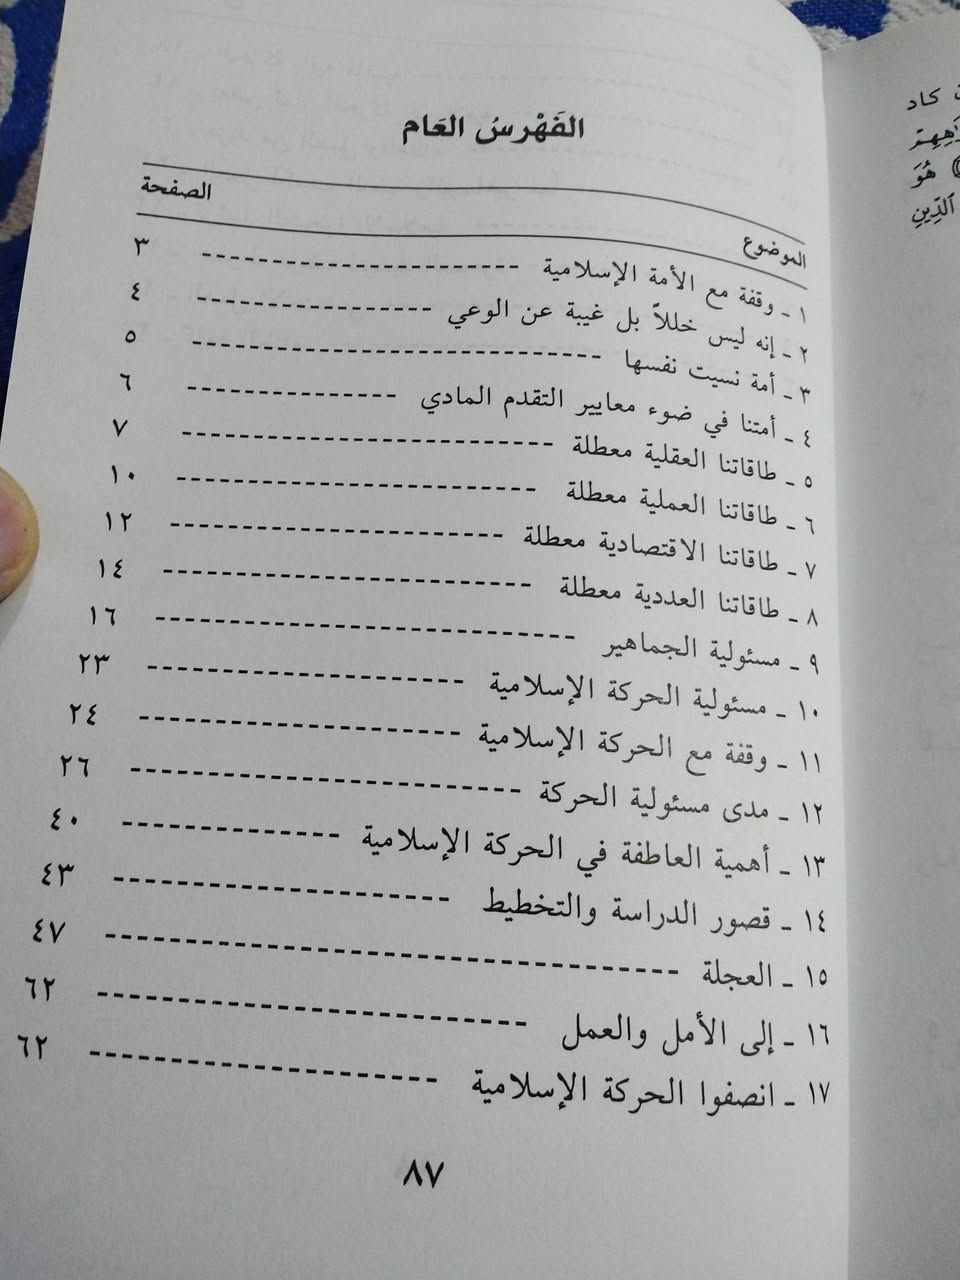 الفَهْرسُ العَام
الموضوع الصفحة
١ ـ وقفة مع الأمة الإسلامية ---------------------- ٣
٢ ـ إنه ليس خللاً بل غيبة عن الوعي ---------------- ٤
٣ ـ أمة نسيت نفسها ---------------------------- ٥
٤ ـ أمتنا في ضوء معايير التقدم المادي -------------- ٦
٥ ـ طاقاتنا العقلية معطلة ------------------------- ٧
٦ ـ طاقاتنا العملية معطلة ------------------------ ١٠
٧ ـ طاقاتنا الاقتصادية معطلة ---------------------- ١٢
٨ ـ طاقاتنا العددية معطلة ------------------------ ١٤
٩ ـ مسئولية الجماهير --------------------------- ١٦
١٠ ـ مسئولية الحركة الإسلامية -------------------- ٢٣
١١ ـ وقفة مع الحركة الإسلامية -------------------- ٢٤
١٢ ـ مدى مسئولية الحركة ----------------------- ٢٦
١٣ ـ أهمية العاطفة في الحركة الإسلامية ------------- ٤٠
١٤ ـ قصور الدراسة والتخطيط -------------------- ٤٣
١٥ ـ العجلة ---------------------------------- ٤٧
١٦ ـ إلى الأمل والعمل -------------------------- ٦٢
١٧ ـ انصفوا الحركة الإسلامية --------------------- ٦٢
٨٧
كاد
هُوَ
ٱلدِّينِ